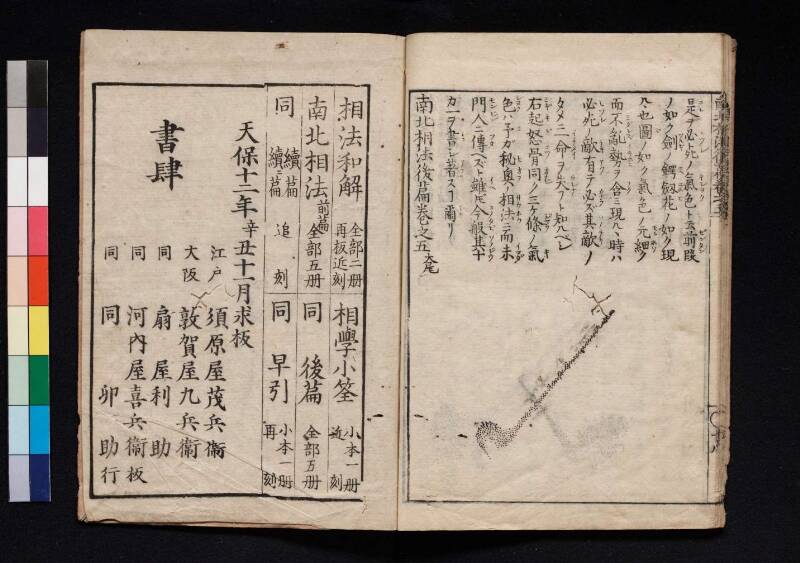 是ヲ必死ノ氣色ト云前段
ノ如ク劍ノ鍔劔花ノ如ク現
ヘ也圖ノ如ク氣色ノ元細ク
而不亂勢ヲ含ミ現ハル時ハ
必死ノ敵有テ必ズ其敵ノ
タメニ一命ヲ失フト知ベシ
右起怒骨同ノ三ケ條ノ氣
色ハ予ガ秘奥ノ相法ニ而未
門人ニ傳ヘズト雖𪜈今般其十
カ一ヲ書シ著スコト爾リ
南北相法後篇巻之五大尾
相法和解 全部二册 再板近刻
相學小筌 小本一册 近刻
南北相法 前篇 全部五册
同 後篇 全部五册
同 續篇 續二篇 追刻
同 早引 小本一册 再刻
天保十二年辛丑十一月求板
書肆
江戸 須原屋茂兵衞
大阪 敦賀屋九兵衞
同 扇屋利助
同 河内屋喜兵衞板
同 同 卯助行